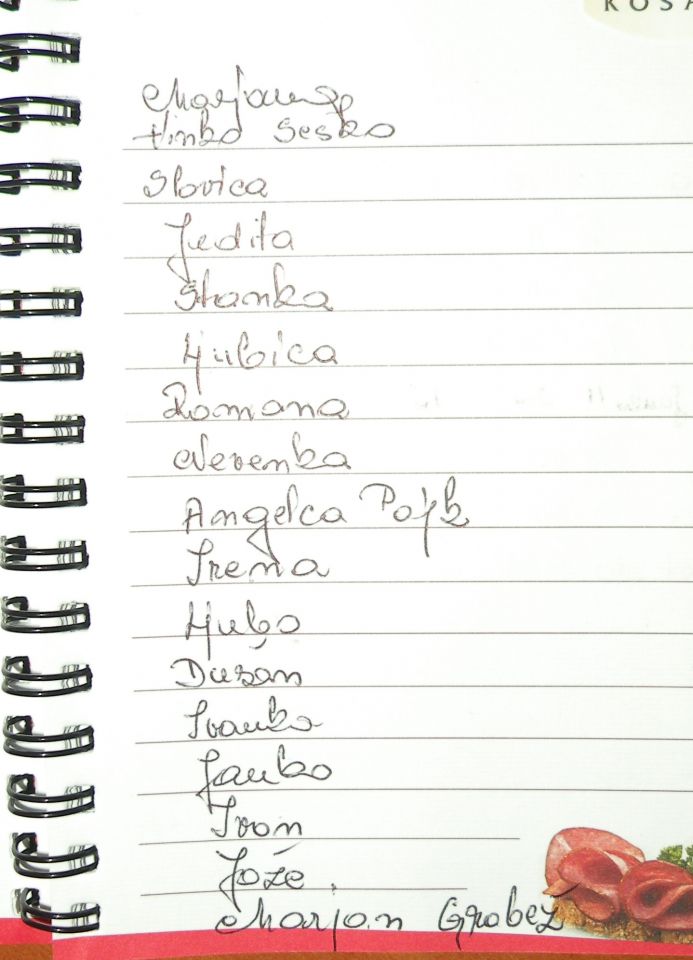 KOSA
Vinko Sesko
Slavica
Judita
Stanka
Ljubica
Romana
Nevenka
Angelca Pajk
Irena
Ljubo
Dušan
Ivanka
Janko
Ivan
Jože
Marjan Grabež